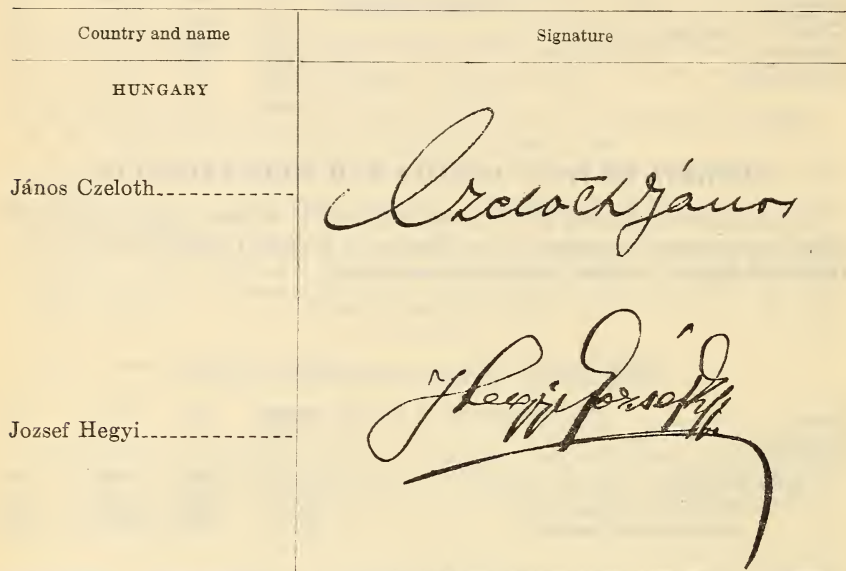 Country and name
Signature
HUNGARY
János Czeloth
Czelóth János
Jozsef Hegyi
Hegyi József